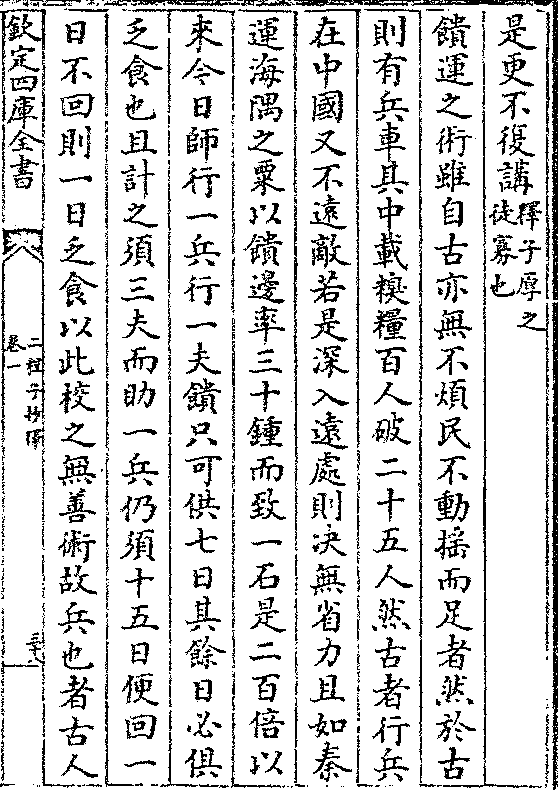 是更不復講擇子厚之徒寡也
饋運之術雖自古亦無不煩民不動揺而足者然於古
則有兵車其中載糗糧百人破二十五人然古者行兵
在中國又不逺敵若是深入逺處則决無省力且如秦
運海隅之粟以饋邊率三十鍾而致一石是二百倍以
來今日師行一兵行一夫饋只可供七日其餘日必俱
乏食也且計之須三夫而助一兵仍須十五日便回一
日不回則一日乏食以此校之無善術故兵也者古人
欽定四庫全書
二程子抄釋
卷一
三十八